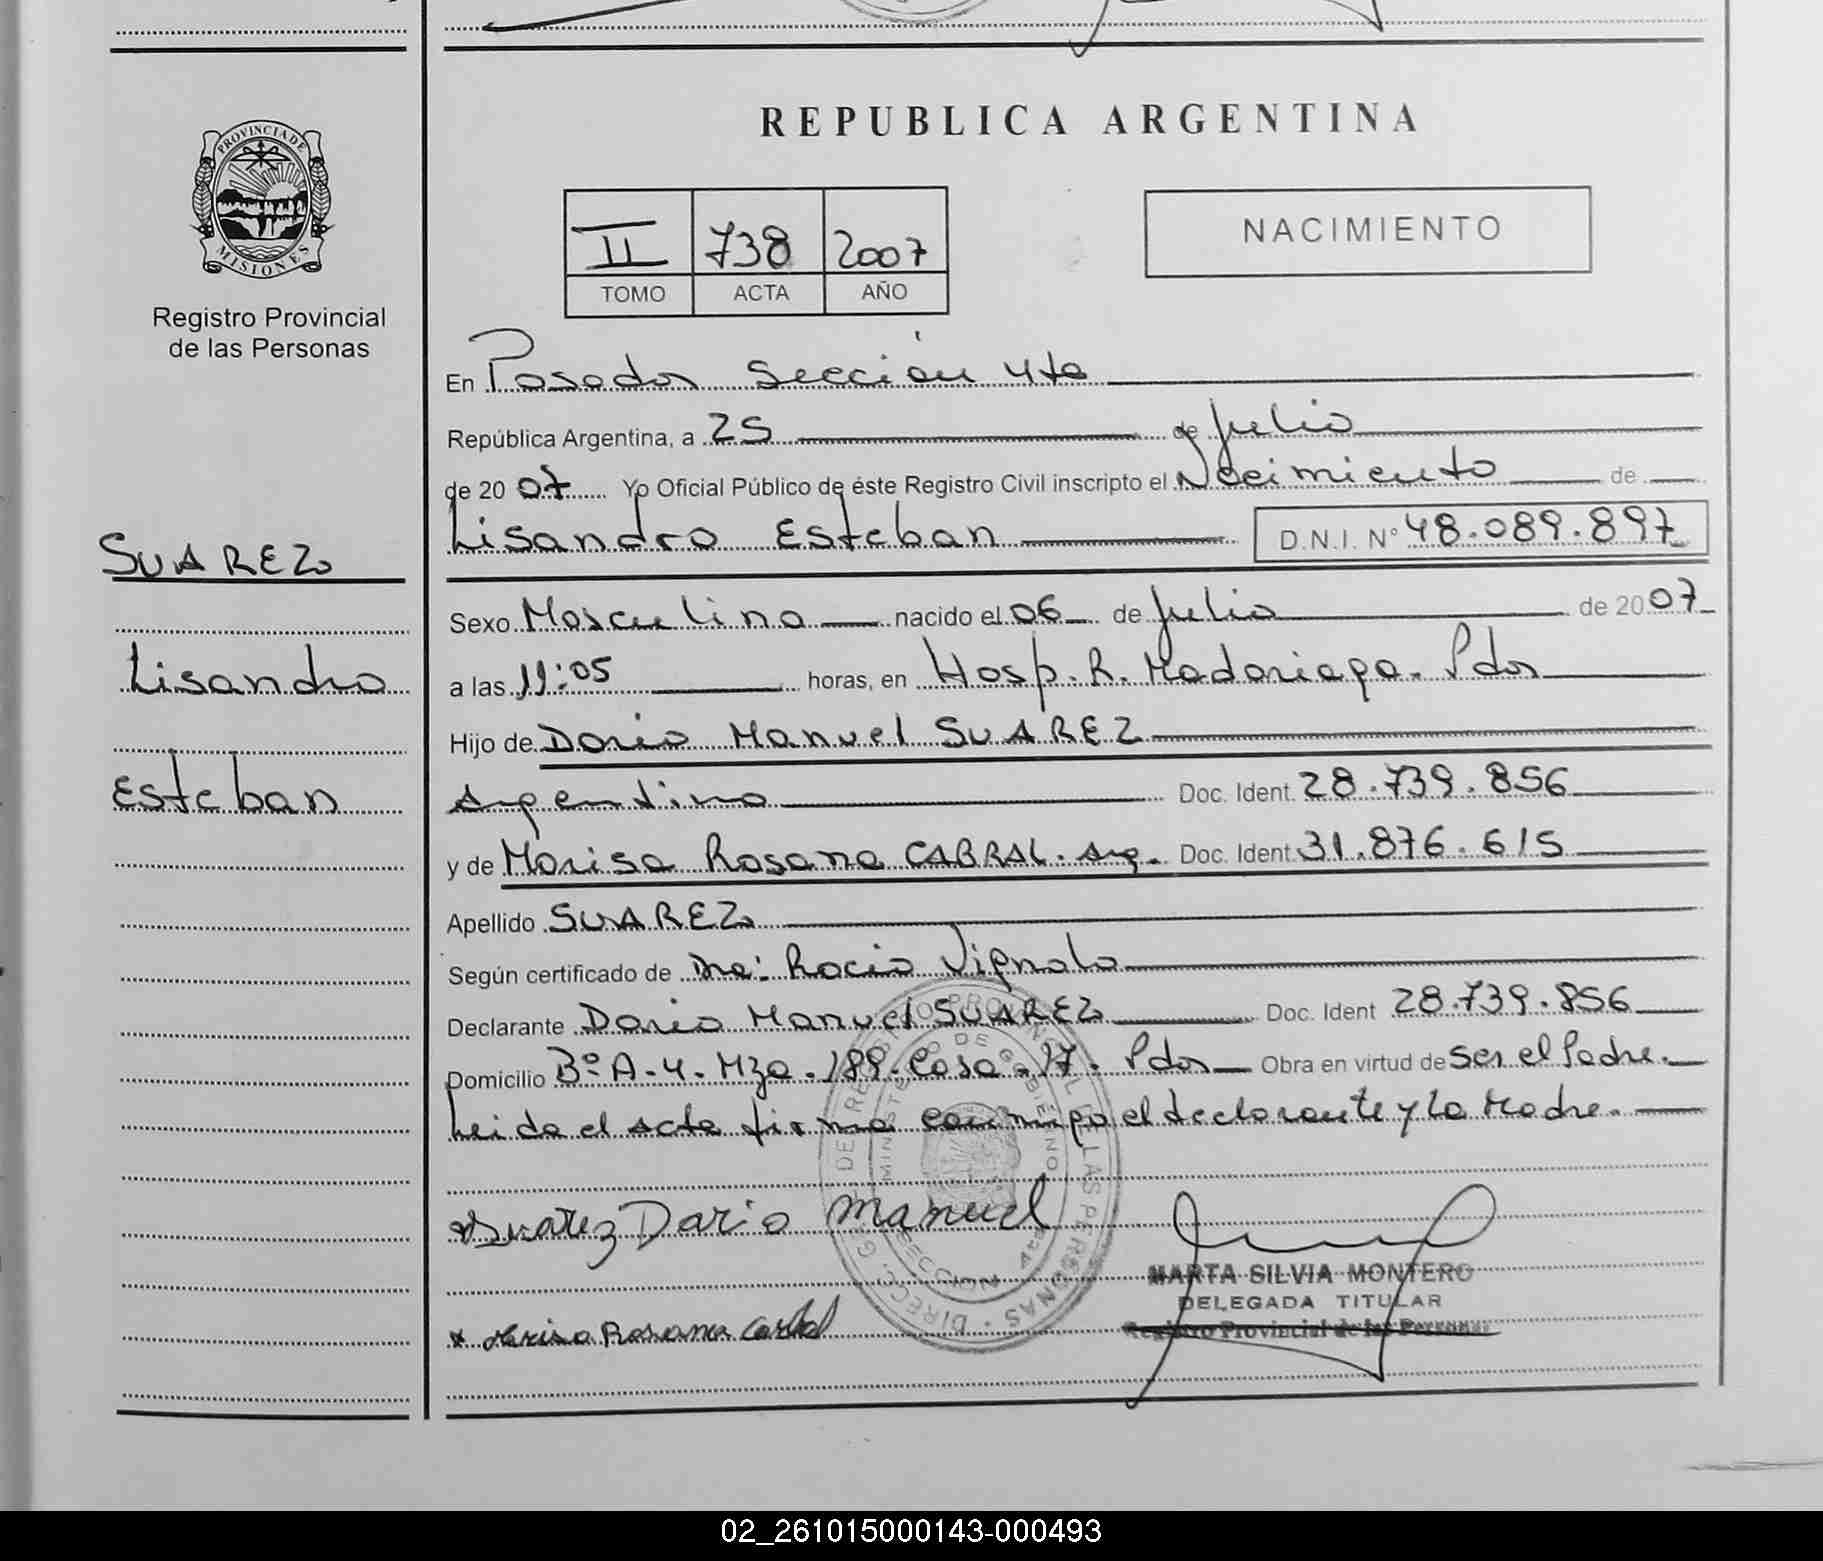 REPUBLICA ARGENTINA
PROVINCIA DE
MISIONES
Registro Provincial
de las Personas
II 738 2007
TOMO ACTA AÑO
NACIMIENTO
En Posadas Sección 4ta
República Argentina, a 25 de Julio
de 2007 Yo Oficial Público de éste Registro Civil inscripto el Nacimiento de
Lisandro Esteban D.N.I. N° 48.089.897
SUAREZ
Lisandro
Esteban
Sexo Masculino nacido el 06 de Julio de 2007
a las 11:05 horas, en Hosp. R. Madariaga. Pdas
Hijo de Dario Manuel SUAREZ
Argentino Doc. Ident. 28.739.856
y de Marisa Rosana CABRAL. Arg. Doc. Ident 31.876.615
Apellido SUAREZ
Según certificado de Dra: Rocio Vignolo
Declarante Dario Manuel SUAREZ Doc. Ident 28.739.856
Domicilio B° A-4. Mza. 189. Casa. 17. Pdas Obra en virtud de ser el Padre.
Leida el acta firma conmigo el declarante y la Madre.
Suarez Dario Manuel
Marisa Rosana Cabral
MINISTERIO DE GOBIERNO
SECCION 4ta
MARTA SILVIA MONTERO
DELEGADA TITULAR
Registro Provincial de las Personas
02_261015000143-000493